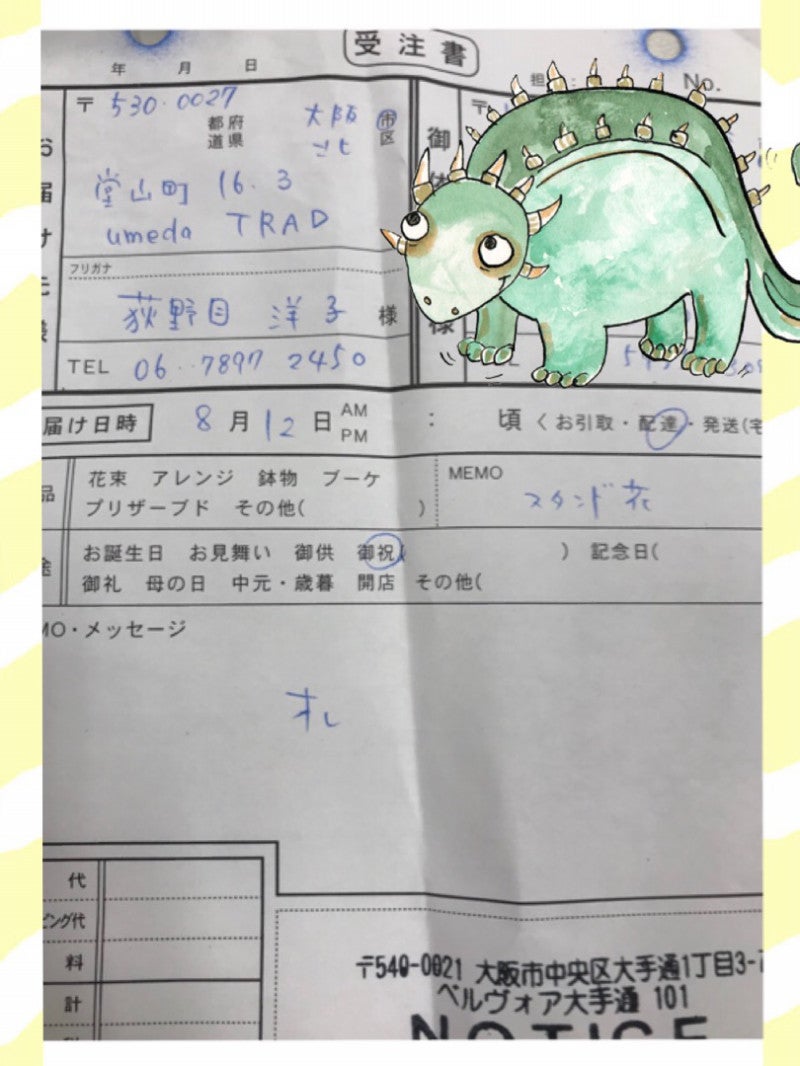 受注書
年 月 日
担
No.
〒530-0027
都府
道県
大阪
市
区
北
堂山町 16.3
umeda TRAD
フリガナ
荻野目 洋子 様
TEL 06-7897 2450
御
様
届け日時 8月12日 AM
PM
: 頃 くお引取・配達・発送(宅
品
花束 アレンジ 鉢物 ブーケ
プリザーブド その他( )
MEMO
スタンド花
途
お誕生日 お見舞い 御供 御祝( ) 記念日(
御礼 母の日 中元・歳暮 開店 その他(
MO・メッセージ
札
代
ピング代
料
計
〒540-0021 大阪市中央区大手通1丁目3-7
ベルヴォア大手通 101
NOTICE